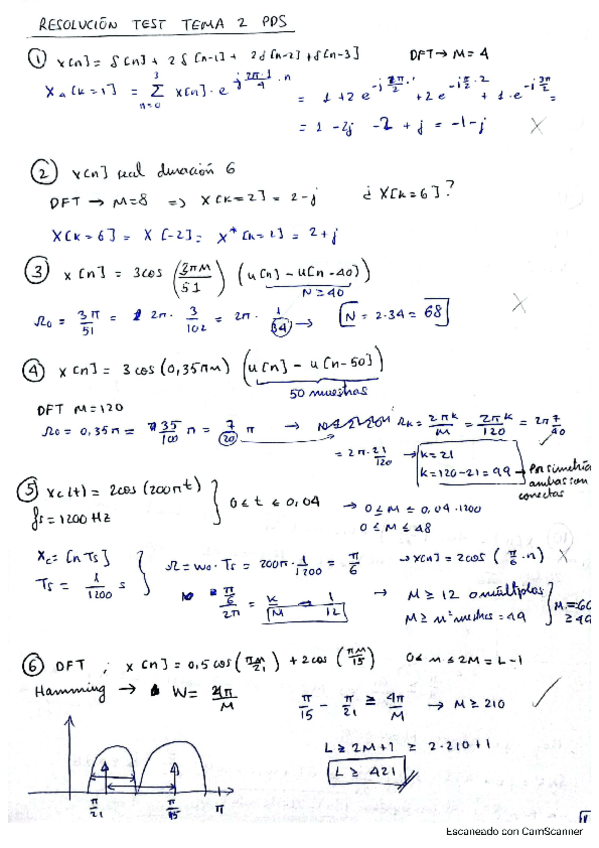 RESOLUCIÓN TEST TEMA 2 PDS
① x[n] = δ[n] + 2δ[n-1] + 2δ[n-2] + δ[n-3] DFT → M = 4
X₄[k=1] = Σ³ₙ₌₀ x[n]·e^(j 2π·1/4 ·n) = 1 + 2e^(-jπ/2) + 2e^(-jπ/2·2) + 1·e^(-j3π/2) =
= 1 - 2j - 2 + j = -1-j X
② x[n] real duración 6
DFT → M=8 ⇒ X[k=2] = 2-j ¿X[k=6]?
X[k=6] = X[-2] = X*[k=2] = 2+j
③ x[n] = 3cos(3πn/51) (u[n] - u[n-40])
N ≥ 40 X
Ω₀ = 3π/51 = 2π·3/102 = 2π·1/34 → N = 2·34 = 68
④ x[n] = 3cos(0,35πn) (u[n] - u[n-50])
50 muestras
DFT M=120
Ω₀ = 0,35π = 35/100 π = 7/20 π → Ωk = 2πk/M = 2πk/120 = 2π 7/40
= 2π·21/120 → k=21
k=120-21=99 → Por simetría ambas son correctas
⑤ xc(t) = 2cos(200πt) } 0≤t≤0,04 → 0≤M≤0,04·1200
fs = 1200 Hz 0≤M≤48
xc = [nTs] } Ω = ω₀·Ts = 200π·1/1200 = π/6 → x[n] = 2cos(π/6·n) X
Ts = 1/1200 s
π/6 / 2π = k/M = 1/12 → M ≥ 12 o múltiplos } M=60
M ≥ nº muestras = 49 ≥49
⑥ DFT ; x[n] = 0,5cos(πn/21) + 2cos(πn/15) 0≤n≤2M = L-1
Hamming → W = 4π/M π/15 - π/21 ≥ 4π/M → M ≥ 210
L ≥ 2M+1 ≥ 2·210+1
L ≥ 421
π/21 π/15 π
Escaneado con CamScanner